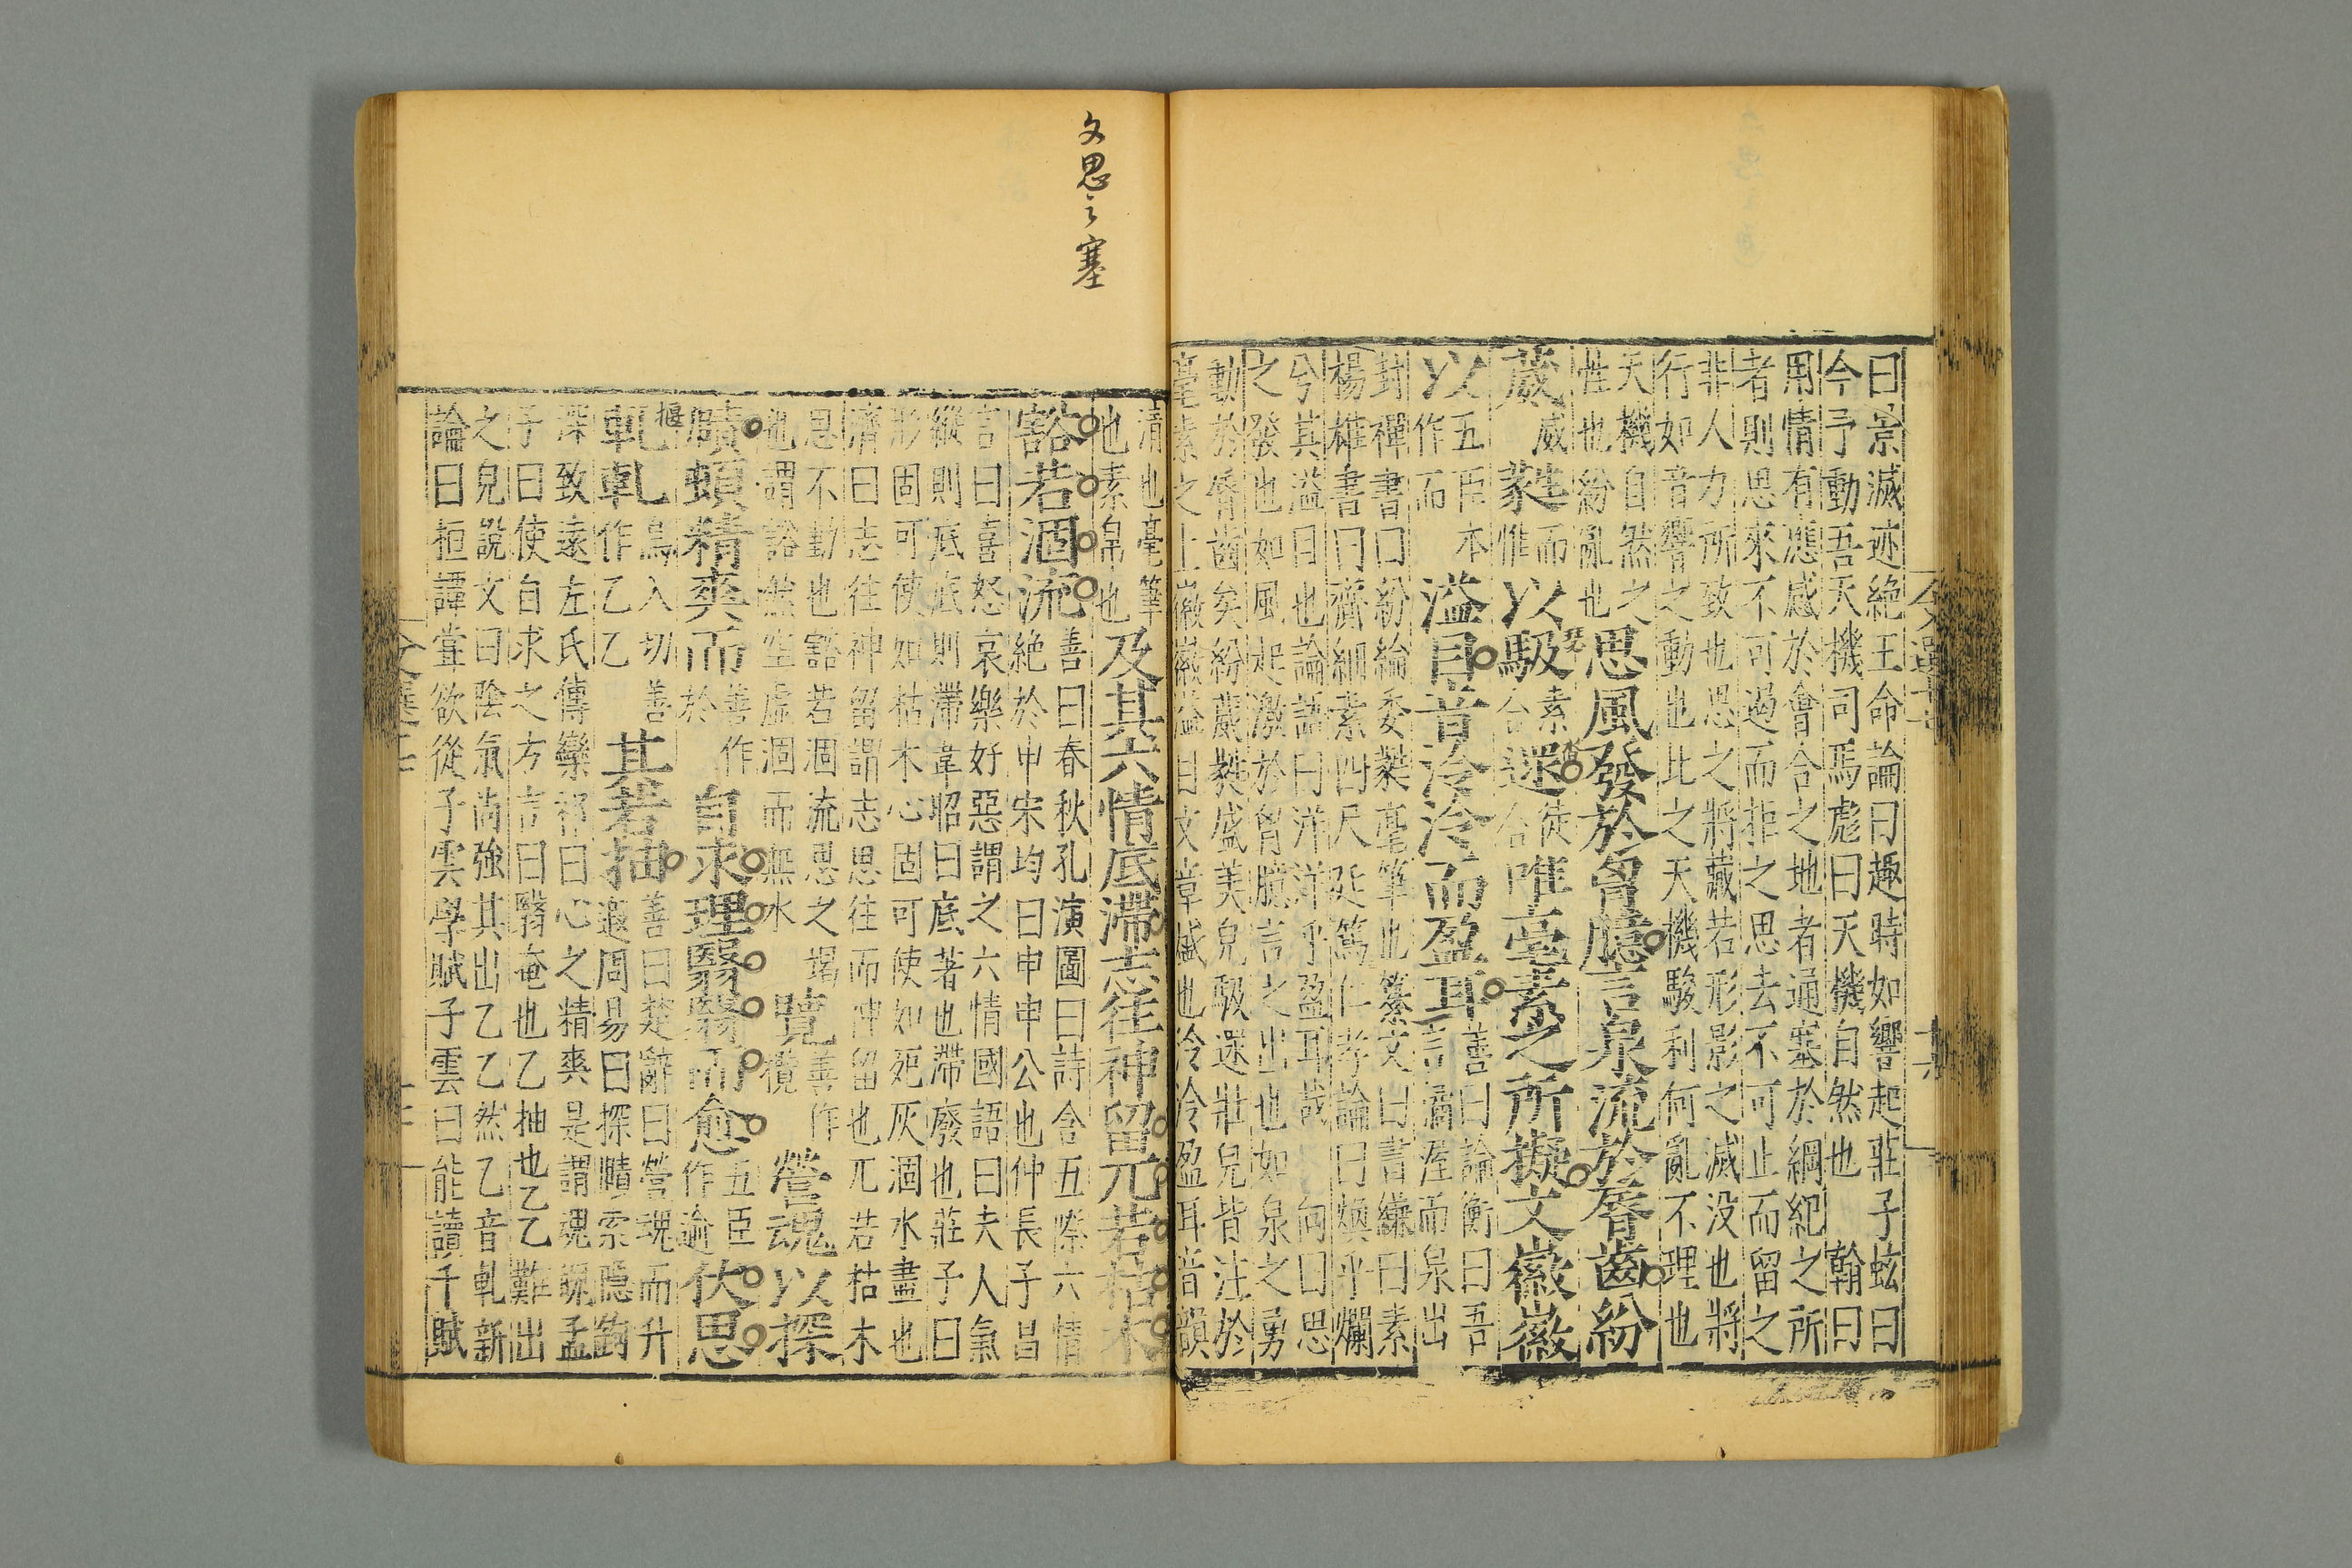 曰景滅迹絶王命論曰趣時如響起莊子蚿曰
今予動吾天機司馬彪曰天機自然也 翰曰
用情有應感於會合之地者通塞於綱紀之所
者則思來不可遏而拒之思去不可止而留之
非人力所致也思之將藏若形影之滅没也將
行如音響之動也此之天機駿利何亂不理也
天機自然之
性也紛亂也
思風發於胷臆言泉流於脣齒紛
葳
威
蕤
而
惟
以馺
素
合
遝
徒
合
唯毫素之所擬文徽徽
以
五臣本
作而
溢目音泠泠而盈耳
善曰論衡曰吾
言潏淫而泉出
封禪書曰紛綸委蕤毫筆也纂文曰書縑曰素
楊雄書曰齎細素四尺延篤仁孝論曰煥乎爛
兮其溢目也論語曰洋洋乎盈耳哉 向曰思
之發也如風起激於胷臆言之出也如泉之勇
動於脣齒矣紛葳蕤盛美皃馺遝壯皃皆注於
毫素之上徽徽溢目文章盛也泠泠盈耳音韻
清也毫筆
也素帛也
及其六情底滯志往神留兀若枯木
豁若涸流
善曰春秋孔演圖曰詩含五際六情
絶於申宋均曰申申公也仲長子昌
言曰喜怒哀樂好惡謂之六情國語曰夫人氣
縱則底底則滯韋昭曰底著也滯廢也莊子曰
形固可使如枯木心固可使如死灰涸水盡也
濟曰志往神留謂志思往而神留也兀若枯木
思不動也豁若涸流思之竭
也謂豁然空虛涸而無水
覽
善作
攬
營魂以探
賾頓精爽而
善作
於
自求理翳翳而愈
五臣
作逾
伏思
乙
軋
乙
軋
烏入切善
作乙乙
其若抽
善曰楚辭曰營魂而升
遐周易曰探賾索隱鉤
深致遠左氏傳欒祁曰心之精爽是謂魂魄孟
子曰使自求之方言曰翳奄也乙抽也乙乙難出
之皃説文曰陰氣尚強其出乙乙然乙音軋新
論曰桓譚甞欲從子雲學賦子雲曰能讀千賦
文思之塞